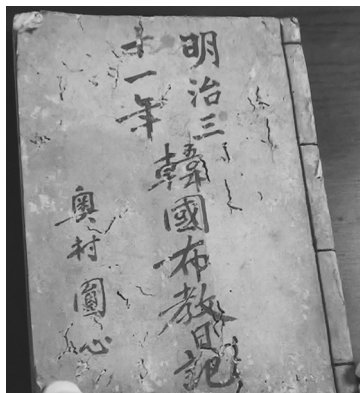 明治三
十一年
韓國布教日記
奥村圓心